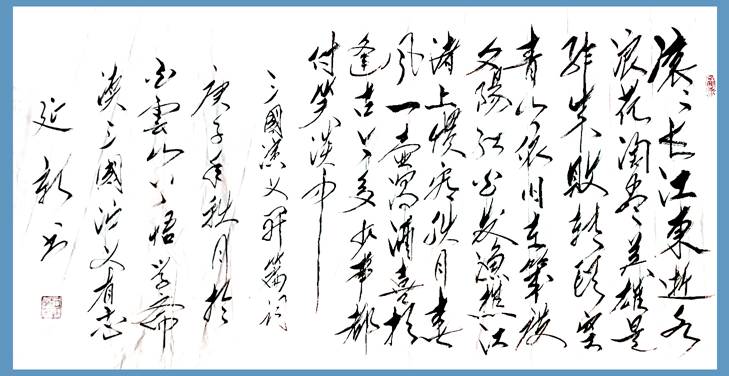 滚〻长江東逝水
浪花淘尽英雄是
非成败转头空
青山依旧在几度
夕陽红白发渔樵江
渚上惯看秋月春
风一壶浊酒喜相
逢古今多少事都
付笑谈中
三國演义开篇词
庚子年秋月於
白雲山下悟学斋
读三國演义有
延新书